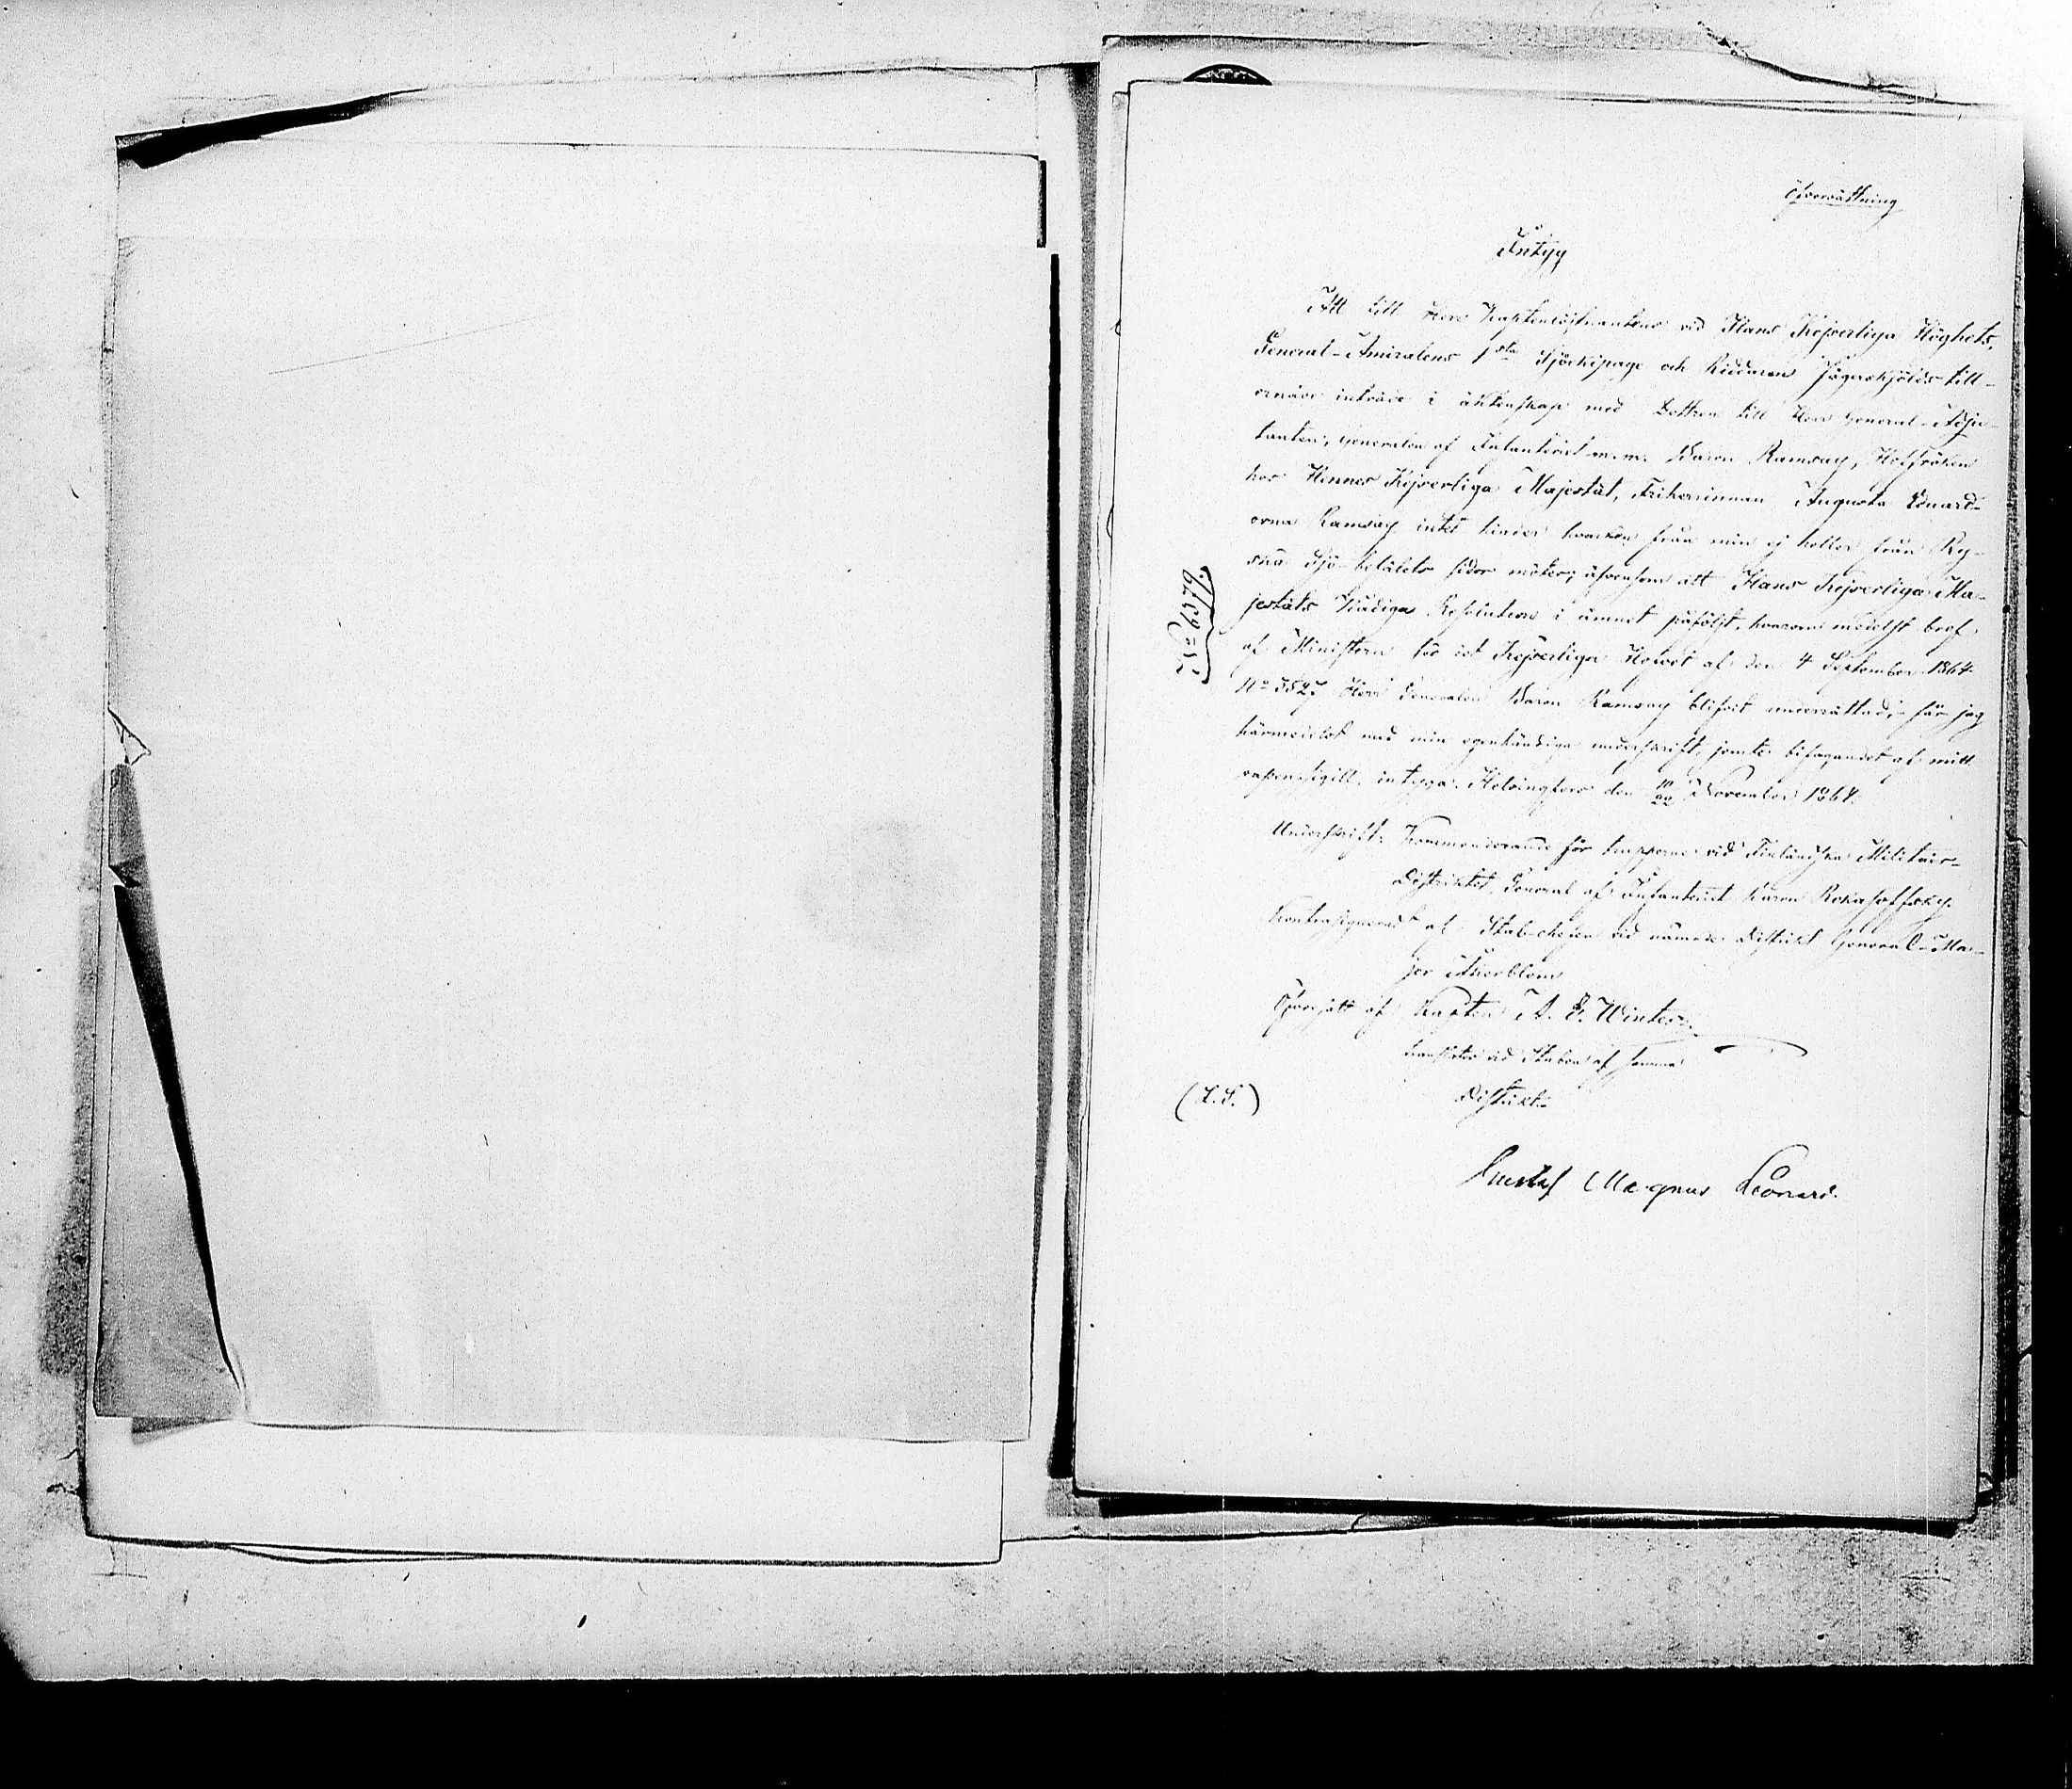 Öfversättning
Intyg
Att till Herr Kaptenlöjtnantens vid Hans Kejserliga Höghets,
General-Amiralens 1sta Sjöekipage och Riddaren Jägerskjölds till-
ernade inträde i äktenskap med Dottren till Herr General-Adju-
tanten, Generalen af Infanteriet m.m. Baron Ramsay, Hoffröken
hos Hennes Kejserliga Majestät, Friherrinnan Augusta Eduard-
ovna Ramsay intet hinder hvarken från min ej heller från Ry-
ska Sjö-befälets sidor möter; äfvensom att Hans Kejserliga Ma-
jestäts Nådiga Resolution i ämnet påföljt, hvarom medelst bref
af Ministern för det Kejserliga Hofvet af den 4 September 1864
No 3527 Herr Generalen Baron Ramsay blifvit underrättad; får jag
härmedelst med min egenhändiga underskrift, jemte bifogandet af mitt
vapensigill, intyga. Helsingfors den 10/22 November 1864.
Underskrift: Kommenderande för trupperne vid Finländska Militair-
Distriktet, General af Infanteriet Baron Rokassoffsky.
Kontrasignerad af Stab-chefen vid nämnde Distrikt General-Ma-
jor Åkerblom
Öfversatt af Kapten A. E. Winter
translator vid Staben af samma
(L.S.) Distrikt.
Gustaf Magnus Leonard.